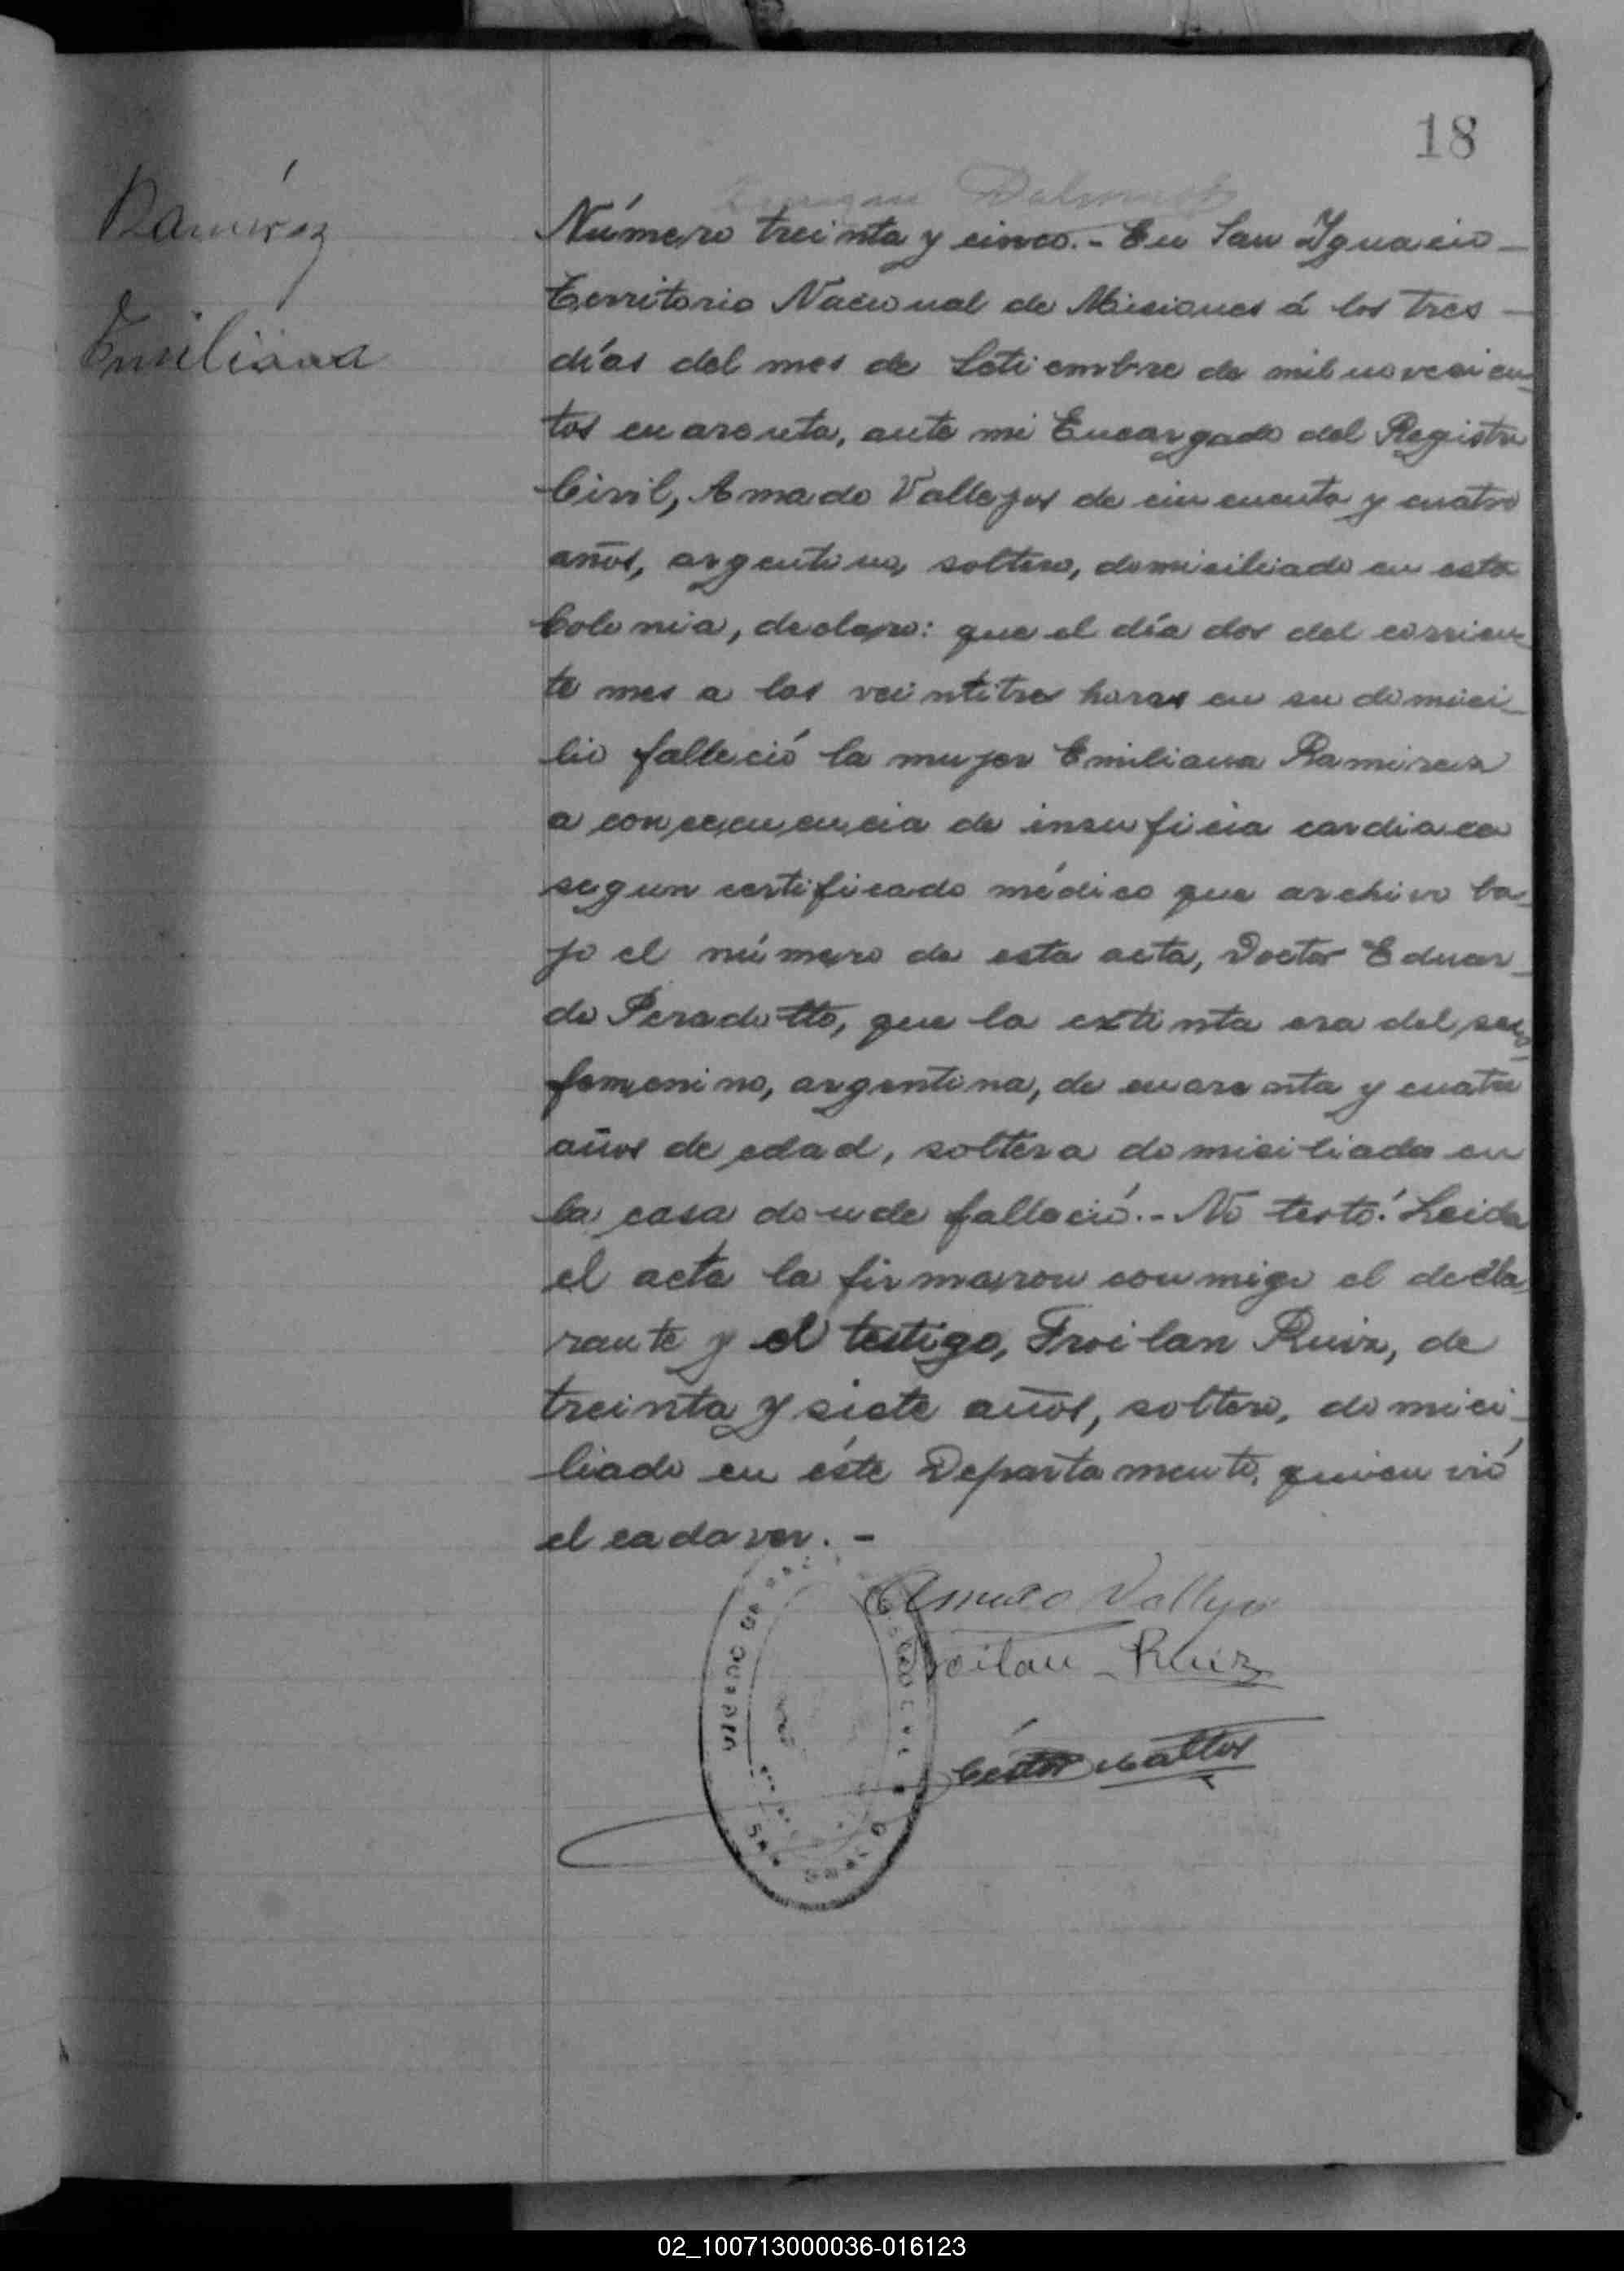 18
Ramírez
Emiliana
Número treinta y cinco.- En San Ygnacio-
Territorio Nacional de Misiones á los tres -
días del mes de Setiembre de mil novecien-
tos cuarenta, ante mi Encargado del Registro
Civil, Amado Vallejos de cincuenta y cuatro
años, argentino, soltero, domiciliado en esta
Colonia, declaro: que el día dos del corrien-
te mes a las veintitres horas en su domici-
lio falleció la mujer Emiliana Ramirez
a consecuencia de insuficia cardiaca
segun certificado médico que archivo ba-
jo el número de esta acta, Doctor Eduar-
do Peradotto, que la extinta era del sexo
femenino, argentina, de cuarenta y cuatro
años de edad, soltera domiciliada en
la casa donde falleció.- No testó. Leida
el acta la firmaron conmigo el decla
rante y el testigo, Froilan Ruiz, de
treinta y siete años, soltero, domici-
liado en éste Departamento, quien vió
el cadaver. -
Amado Vallejo
Froilan - Ruiz
02_100713000036-016123